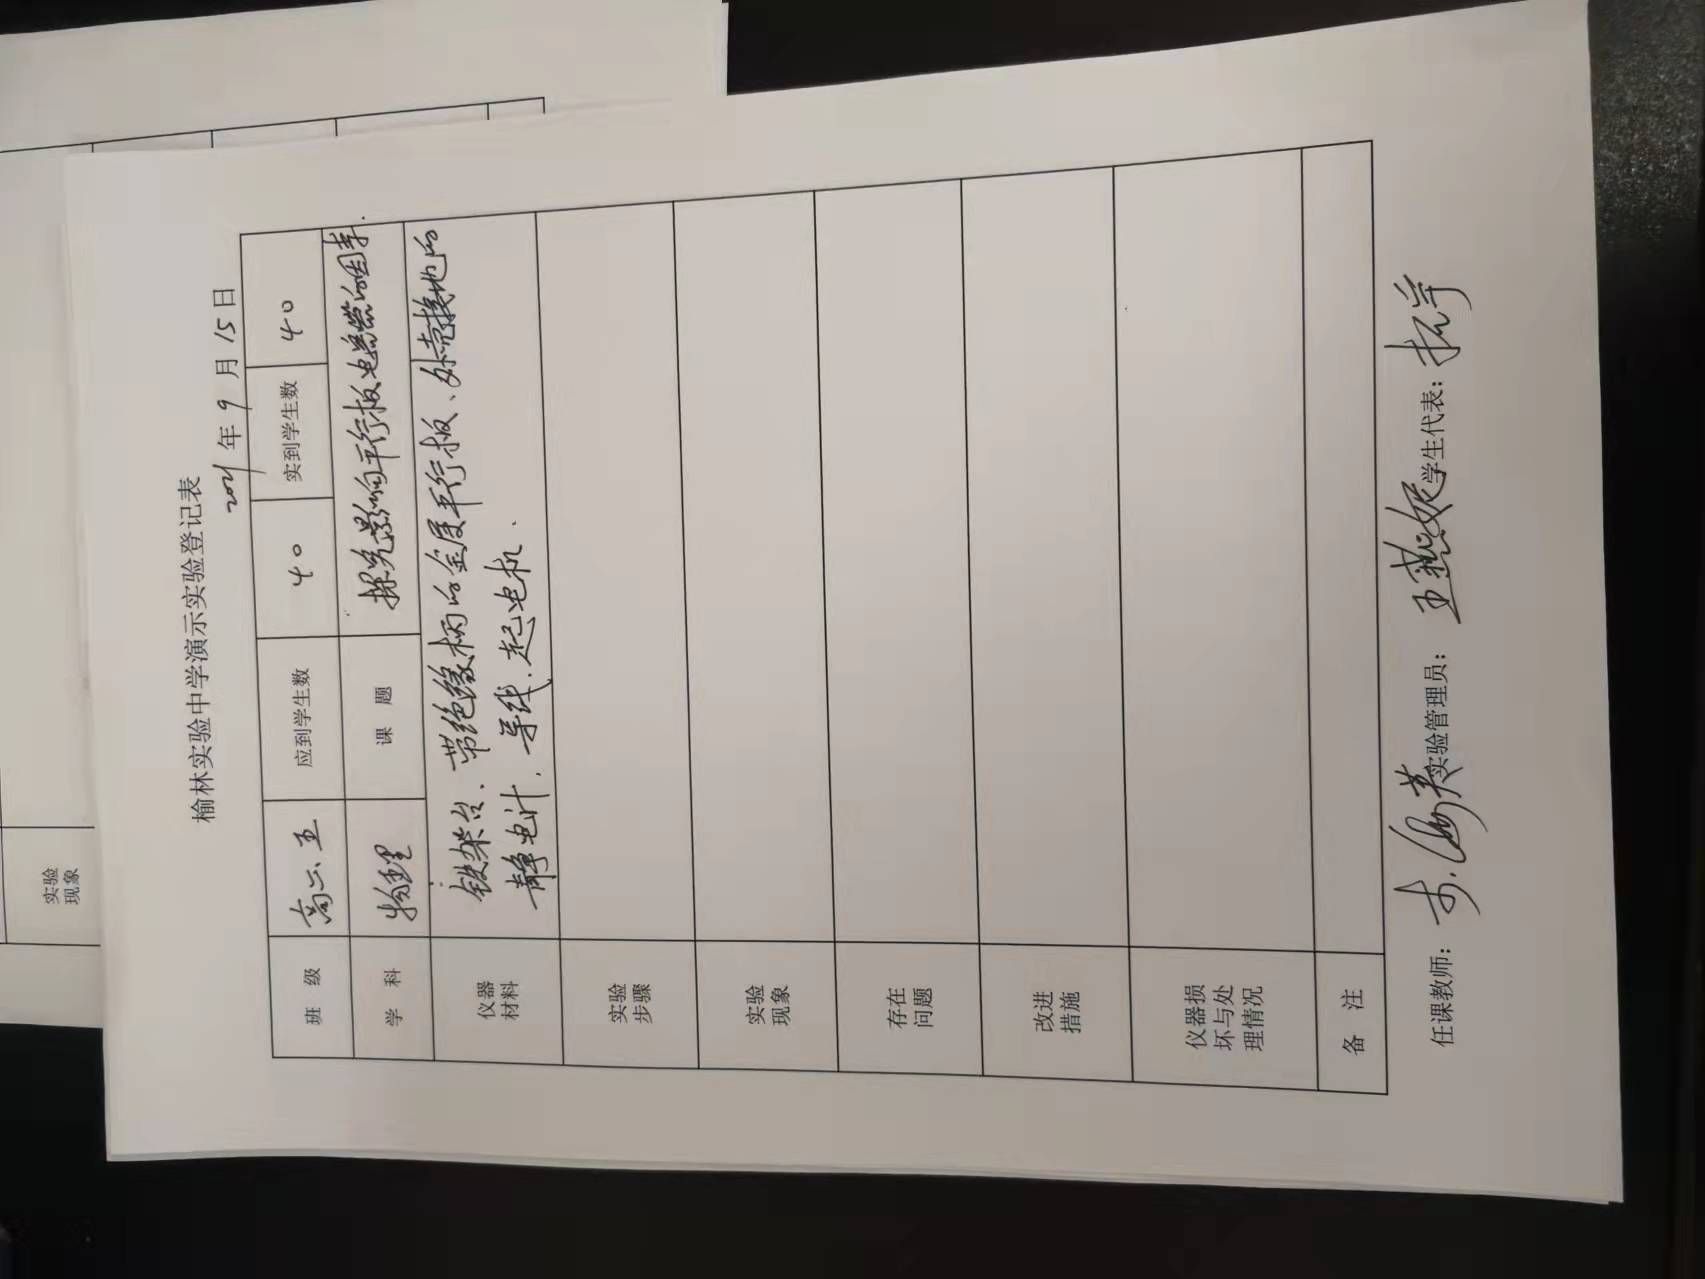 榆林实验中学演示实验登记表
2021年 9 月 15 日
班 级 高二、五 应到学生数 40 实到学生数 40
学 科 物理 课 题 探究影响平行板电容器的因素.
仪器 铁架台、带绝缘柄的金属平行板、外壳接地的
材料 静电计、导线、起电机.
实验
步骤
实验
现象
存在
问题
改进
措施
仪器损
坏与处
理情况
备 注
任课教师: 实验管理员: 王燕妮 学生代表:
实验
现象